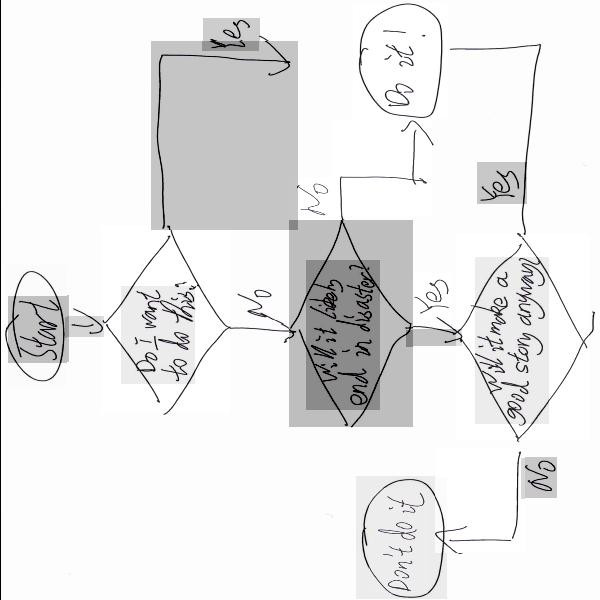 Start
Do I want
to do this?
Yes
No
Will it likely
end in disaster?
No
Yes
Do it!
Will it make a
good story anyway?
Yes
No
Don't do it